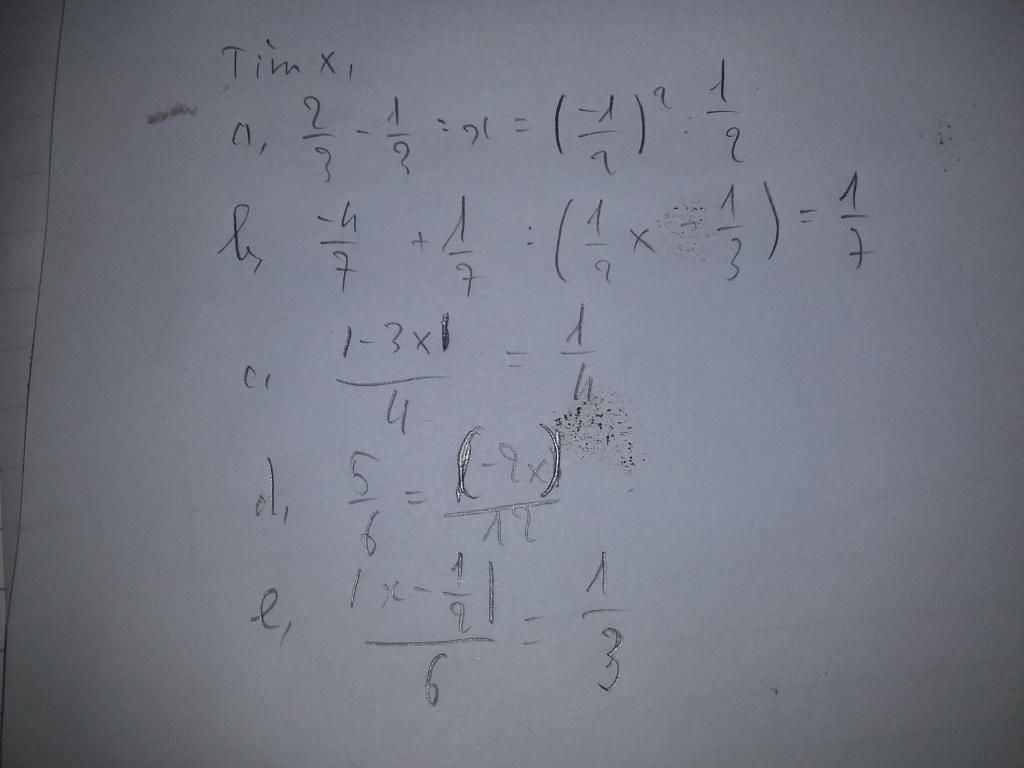 Tim x,
a, 2/3 - 1/3 : x = (-1/2)² : 1/2
b, -4/7 + 1/7 : (1/2 x - 1/3) = 1/7
c, |-3x|/4 = 1/4
d, 5/6 = (-2x)/12
e, |x - 1/2|/6 = 1/3